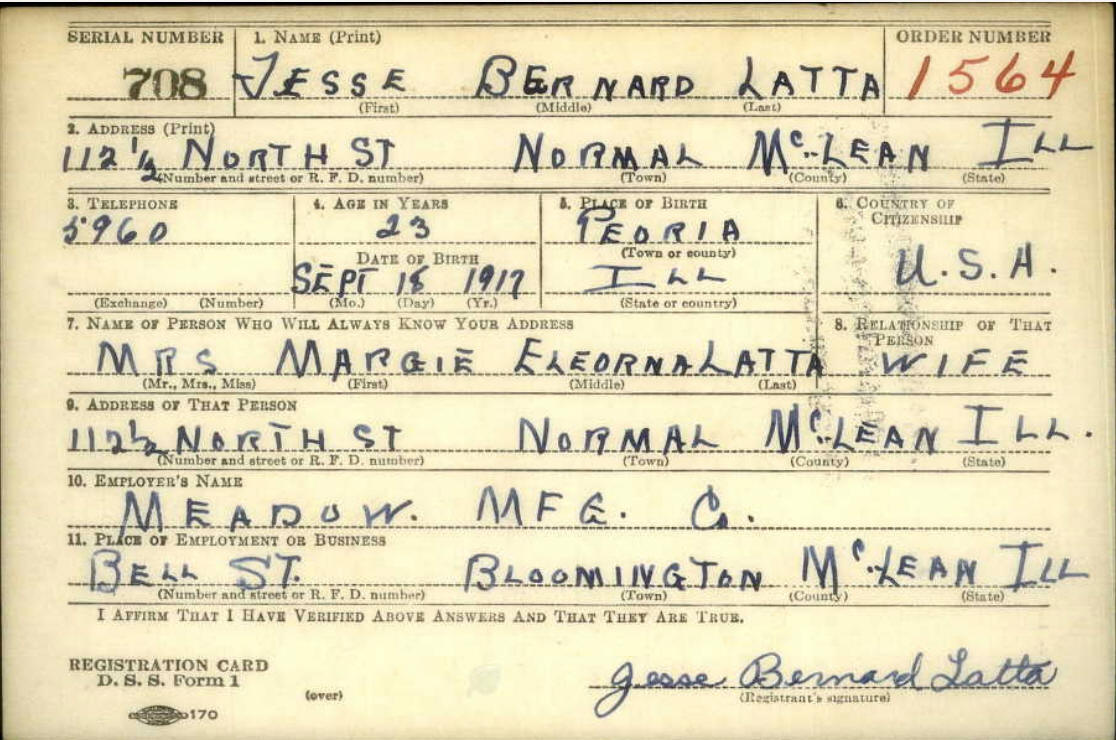 SERIAL NUMBER 1. NAME (Print) ORDER NUMBER
708 JESSE BERNARD LATTA 1564
(First) (Middle) (Last)
2. ADDRESS (Print)
112 1/2 NORTH ST NORMAL McLEAN ILL
(Number and street or R. F. D. number) (Town) (County) (State)
3. TELEPHONE 4. AGE IN YEARS 5. PLACE OF BIRTH 6. COUNTRY OF CITIZENSHIP
5960 23 PEORIA
DATE OF BIRTH (Town or county)
SEPT 18 1917 ILL U.S.A.
(Exchange) (Number) (Mo.) (Day) (Yr.) (State or country)
7. NAME OF PERSON WHO WILL ALWAYS KNOW YOUR ADDRESS 8. RELATIONSHIP OF THAT PERSON
MRS MARGIE ELEORNA LATTA WIFE
(Mr., Mrs., Miss) (First) (Middle) (Last)
9. ADDRESS OF THAT PERSON
112 1/2 NORTH ST NORMAL McLEAN ILL.
(Number and street or R. F. D. number) (Town) (County) (State)
10. EMPLOYER'S NAME
MEADOW. MFG. Co.
11. PLACE OF EMPLOYMENT OR BUSINESS
BELL ST. BLOOMINGTON McLEAN ILL
(Number and street or R. F. D. number) (Town) (County) (State)
I AFFIRM THAT I HAVE VERIFIED ABOVE ANSWERS AND THAT THEY ARE TRUE.
REGISTRATION CARD
D. S. S. Form 1
(over)
Jesse Bernard Latta
(Registrant's signature)
170